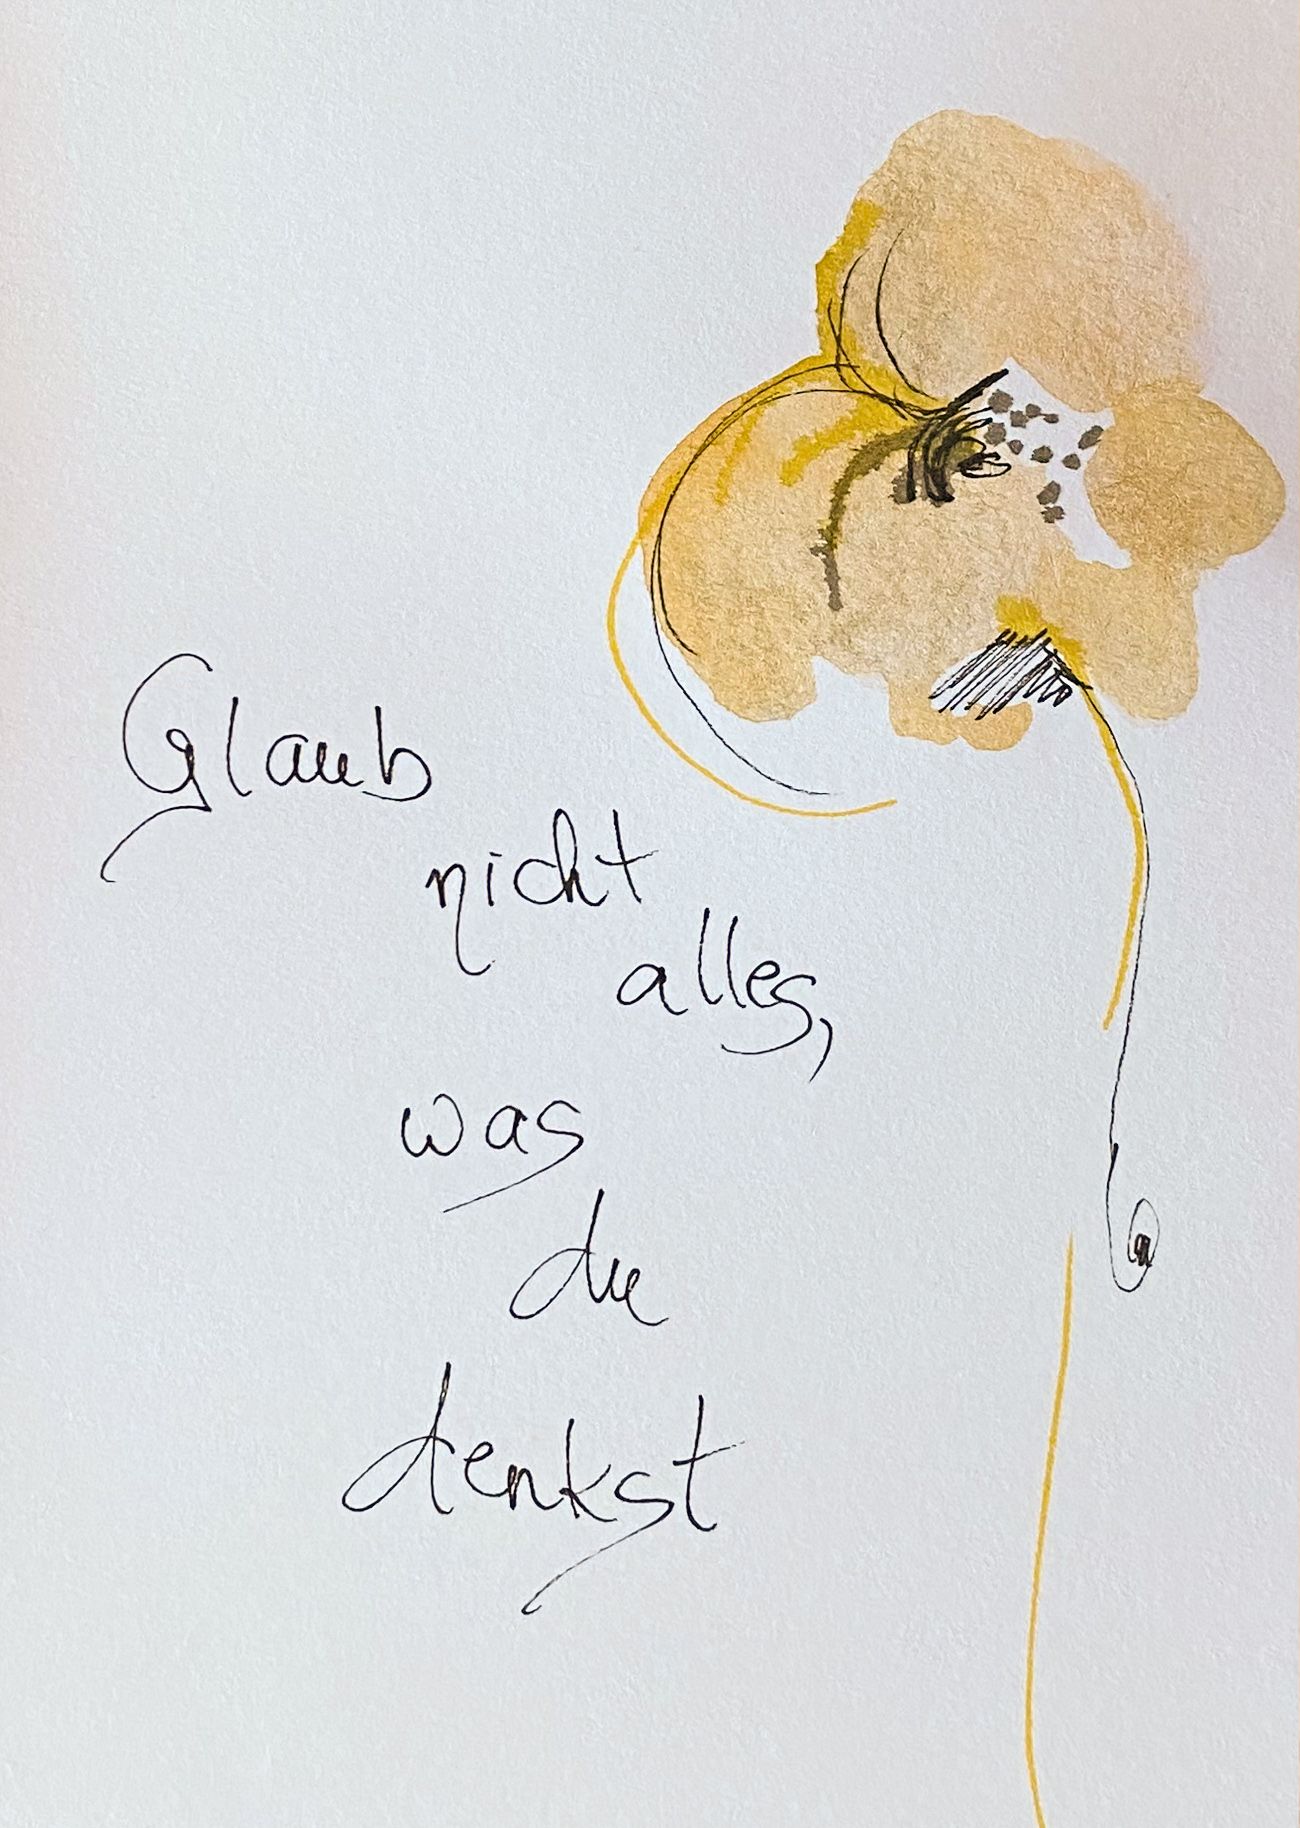 Glaub
nicht
alles,
was
du
denkst